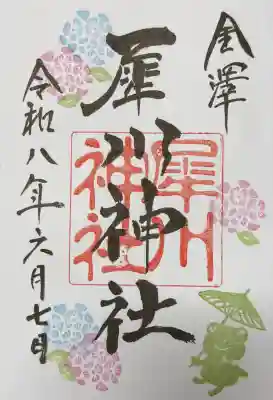 金澤
犀川神社
犀川
神社
令和八年六月七日